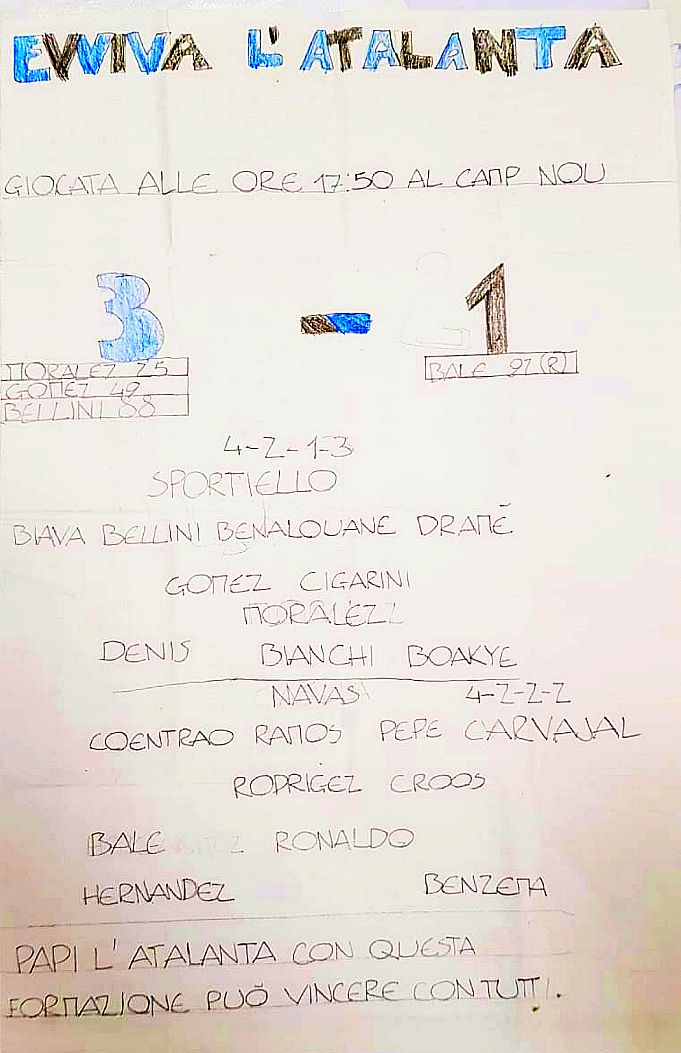 EVVIVA L'ATALANTA
GIOCATA ALLE ORE 17:50 AL CAMP NOU
3 - 1
MORALEZ 25
GOMEZ 49
BELLINI 88
BALE 91 (R)
4-2-1-3
SPORTIELLO
BIAVA BELLINI BENALOUANE DRAMÉ
GOMEZ CIGARINI
MORALEZ
DENIS BIANCHI BOAKYE
NAVAS 4-2-2-2
COENTRAO RAMOS PEPE CARVAJAL
RODRIGEZ CROOS
BALE RONALDO
HERNANDEZ BENZEMA
PAPI L'ATALANTA CON QUESTA
FORMAZIONE PUÒ VINCERE CON TUTTI.